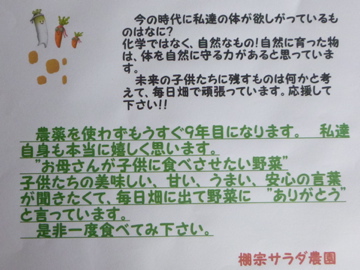 今の時代に私達の体が欲しがっているも
のはなに?
化学ではなく、自然なもの!自然に育った物
は、体を自然に守る力があると思っていま
す。
未来の子供たちに残すものは何かと考
えて、毎日畑で頑張っています。応援して
下さい!!
農薬を使わずもうすぐ9年目になります。 私達
自身も本当に嬉しく思います。
"お母さんが子供に食べさせたい野菜"
子供たちの美味しい、甘い、うまい、安心の言葉
が聞きたくて、毎日畑に出て野菜に "ありがとう"
と言っています。
是非一度食べてみ下さい。
棚宗サラダ農園